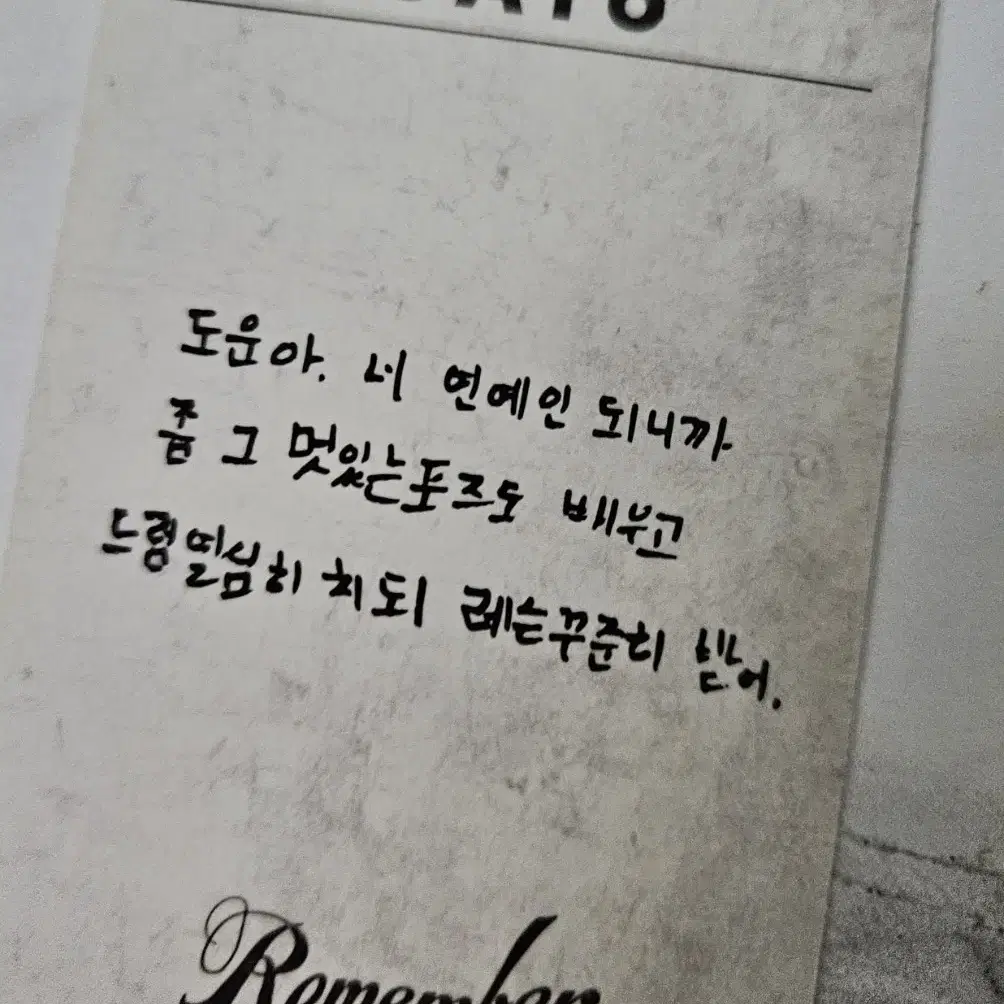 도운아. 너 연예인 되니까
좀 그 멋있는포즈도 배우고
드럼열심히 치되 레슨꾸준히 받어.
Remember